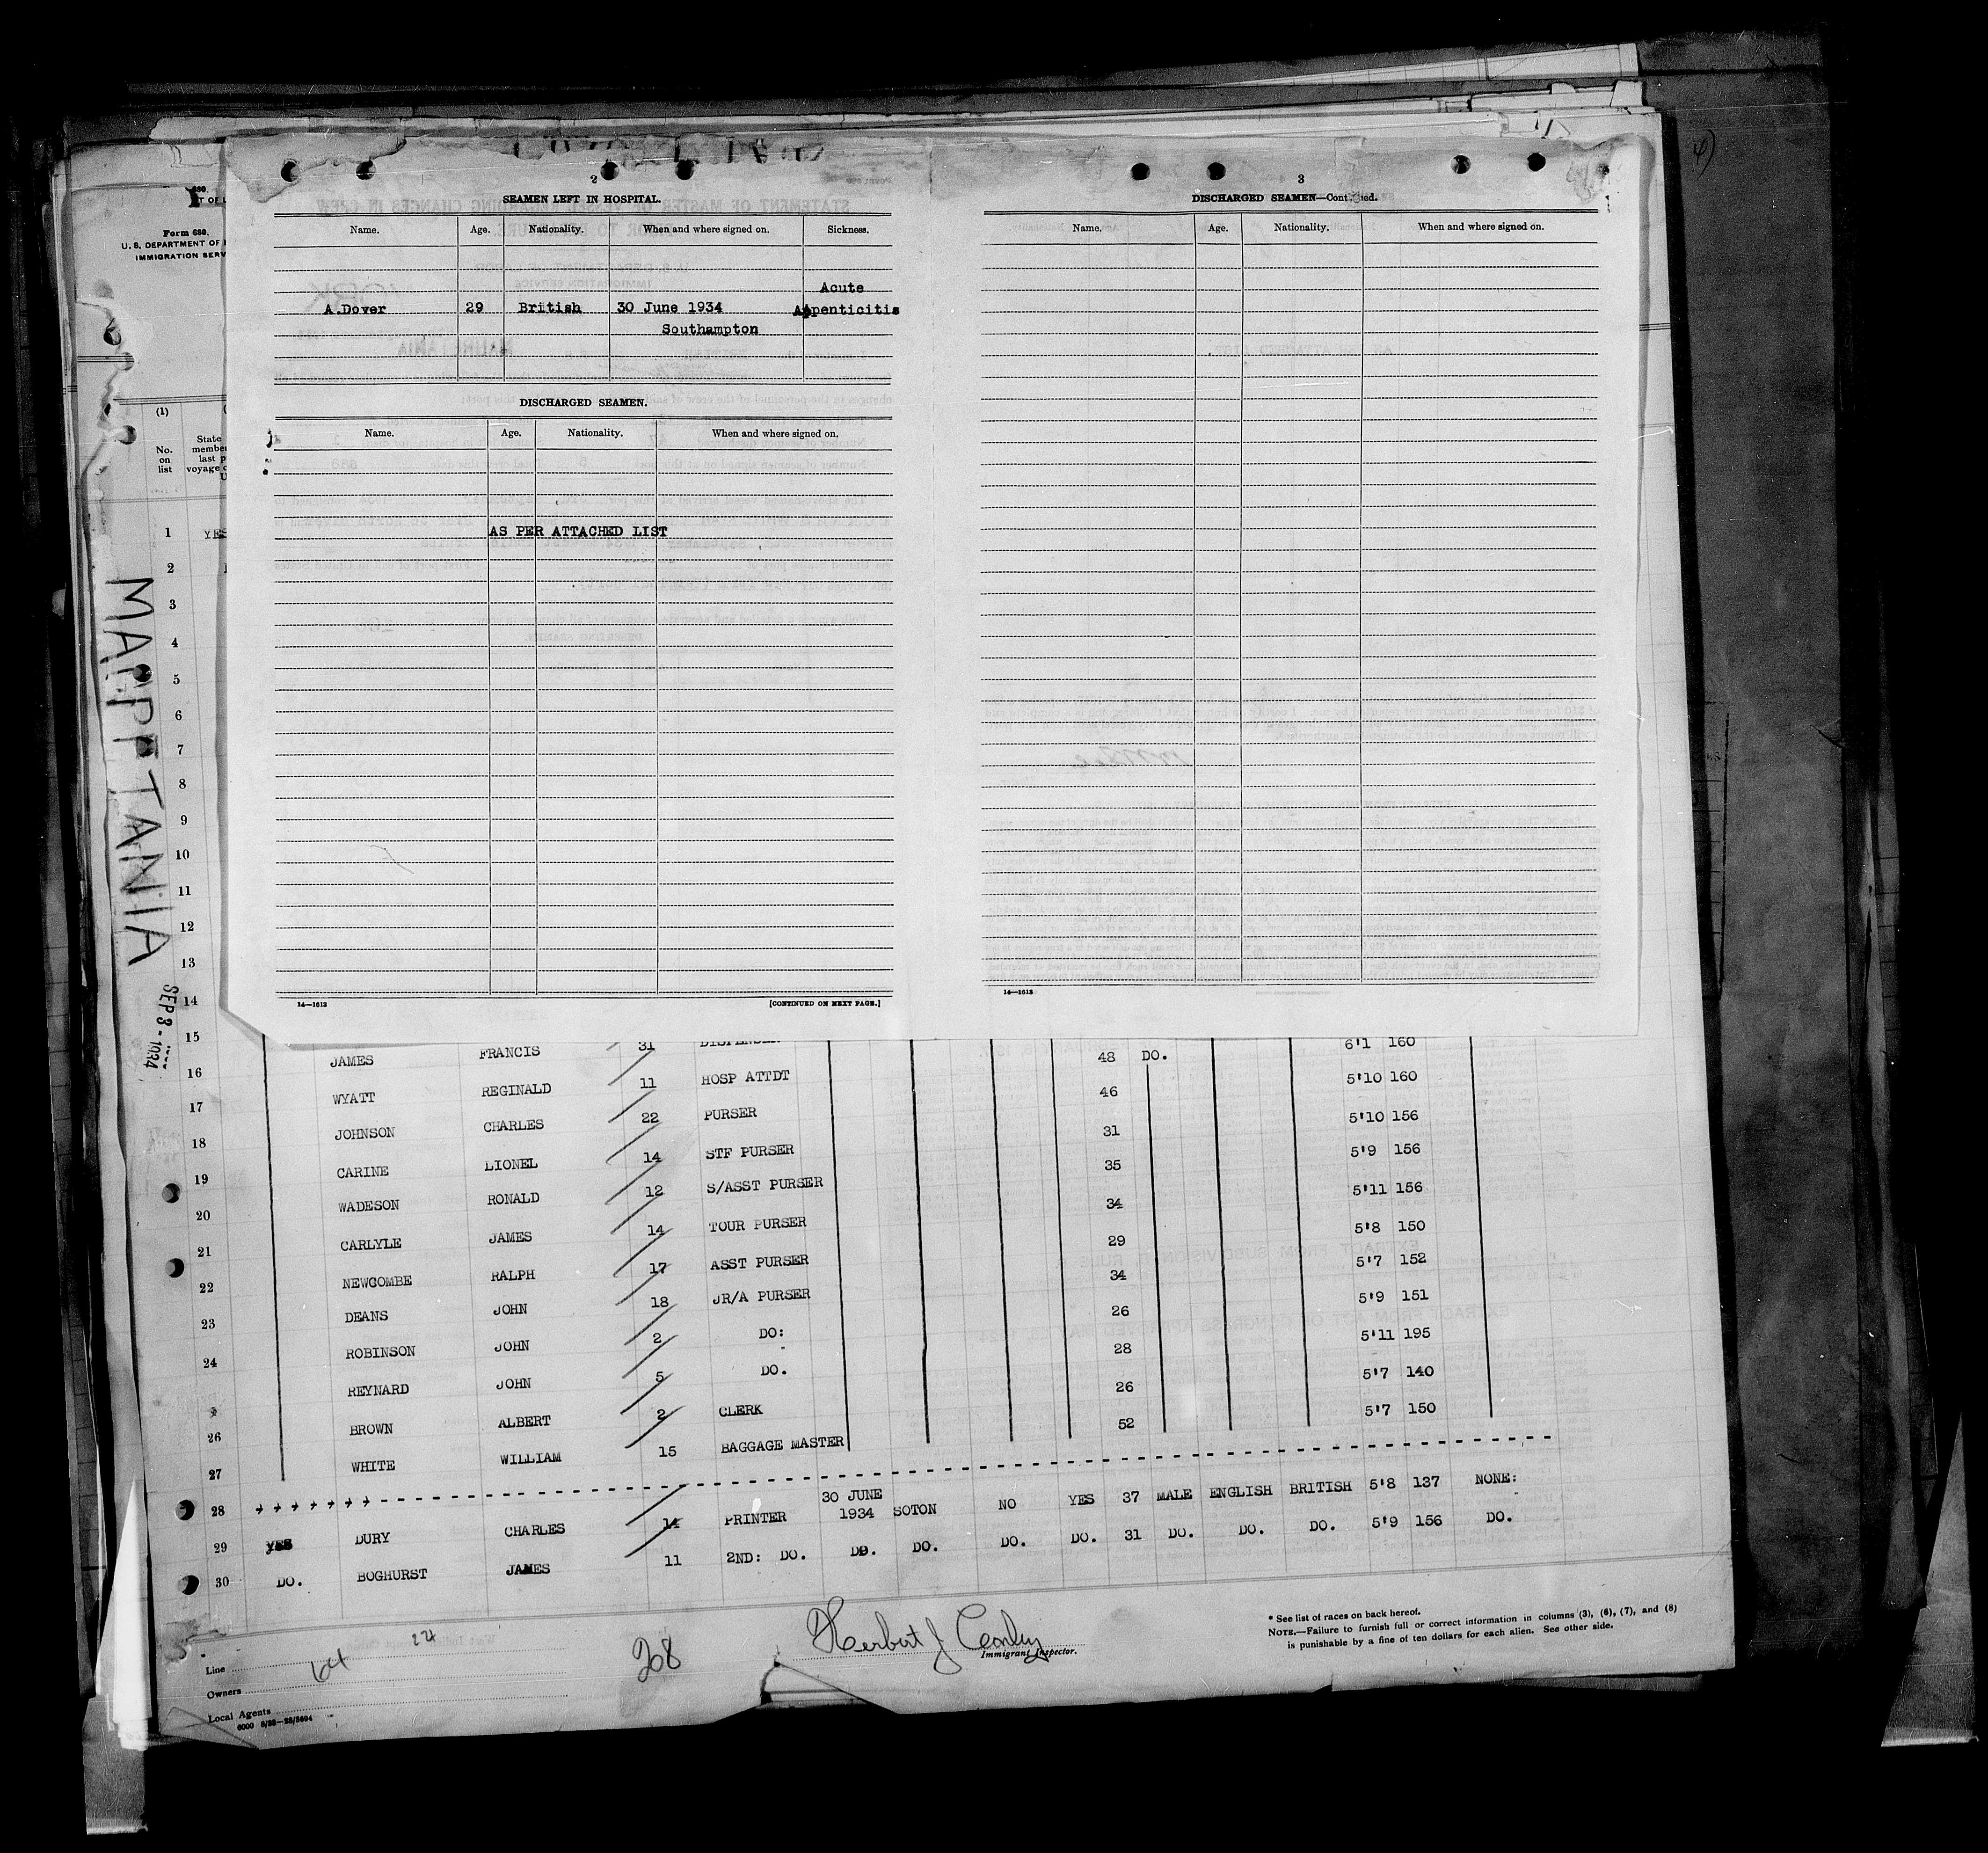 2
SEAMEN LEFT IN HOSPITAL.
Name. Age. Nationality. When and where signed on. Sickness.
Acute
A.Dover 29 British 30 June 1934 Appenticitis
Southampton
DISCHARGED SEAMEN.
Name. Age. Nationality. When and where signed on.
AS PER ATTACHED LIST
14—1613 [CONTINUED ON NEXT PAGE.]
3
DISCHARGED SEAMEN—Continued.
Name. Age. Nationality. When and where signed on.
14—1613
Form 680.
U. S. DEPARTMENT OF
IMMIGRATION SERV
(1)
No. on list
State
member
last p
voyage
1 YES
2
3
4
5
6
7
8
9
10
11
12
13
14
15
16
17
18
19
20
21
22
23
24
26
27
28
29
30
MAPPTANIA
SEP 3 - 1934
JAMES FRANCIS 31 DISPENSER 48 DO. 6'1 160
WYATT REGINALD 11 HOSP ATTDT 46 5'10 160
JOHNSON CHARLES 22 PURSER 31 5'10 156
CARINE LIONEL 14 STF PURSER 35 5'9 156
WADESON RONALD 12 S/ASST PURSER 34 5'11 156
CARLYLE JAMES 14 TOUR PURSER 29 5'8 150
NEWCOMBE RALPH 17 ASST PURSER 34 5'7 152
DEANS JOHN 18 JR/A PURSER 26 5'9 151
ROBINSON JOHN 2 DO: 28 5'11 195
REYNARD JOHN 5 DO. 26 5'7 140
BROWN ALBERT 2 CLERK 52 5'7 150
WHITE WILLIAM 15 BAGGAGE MASTER
YES DURY CHARLES 14 PRINTER 30 JUNE 1934 SOTON NO YES 37 MALE ENGLISH BRITISH 5'8 137 NONE:
DO. BOGHURST JAMES 11 2ND: DO. DO. DO. DO. DO. 31 DO. DO. DO. 5'9 156 DO.
Line
Owners
Local Agents
6000 5/33—28/3604
64
224
208
Herbert J Conley
Immigrant Inspector.
* See list of races on back hereof.
NOTE.—Failure to furnish full or correct information in columns (3), (6), (7), and (8)
is punishable by a fine of ten dollars for each alien. See other side.